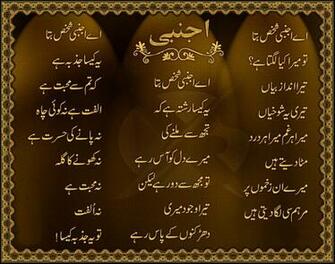 اجنبی
اے اجنبی شخص بتا
تو میرا کیا لگتا ہے؟
تیرا انداز بیاں
تیری یہ شوخیاں
میرا ہر غم میرا ہر درد
مٹا دیتے ہیں
میرے ان زخموں پر
مرہم سی لگا دیتی ہیں
اے اجنبی شخص بتا
یہ کیسا رشتہ ہے کہ
تجھ سے ملنے کی
میرے دل کو آس رہے
تو مجھ سے دور رہے لیکن
تیرا وجود میری
دھڑکنوں کے پاس رہے
اے اجنبی شخص بتا
یہ کیسا جذبہ ہے
کہ تم سے محبت ہے
الفت ہے نہ کوئی چاہ
نہ پانے کی حسرت ہے
نہ کھونے کا گلہ
نہ محبت ہے
نہ الفت
تو یہ جذبہ کیسا!